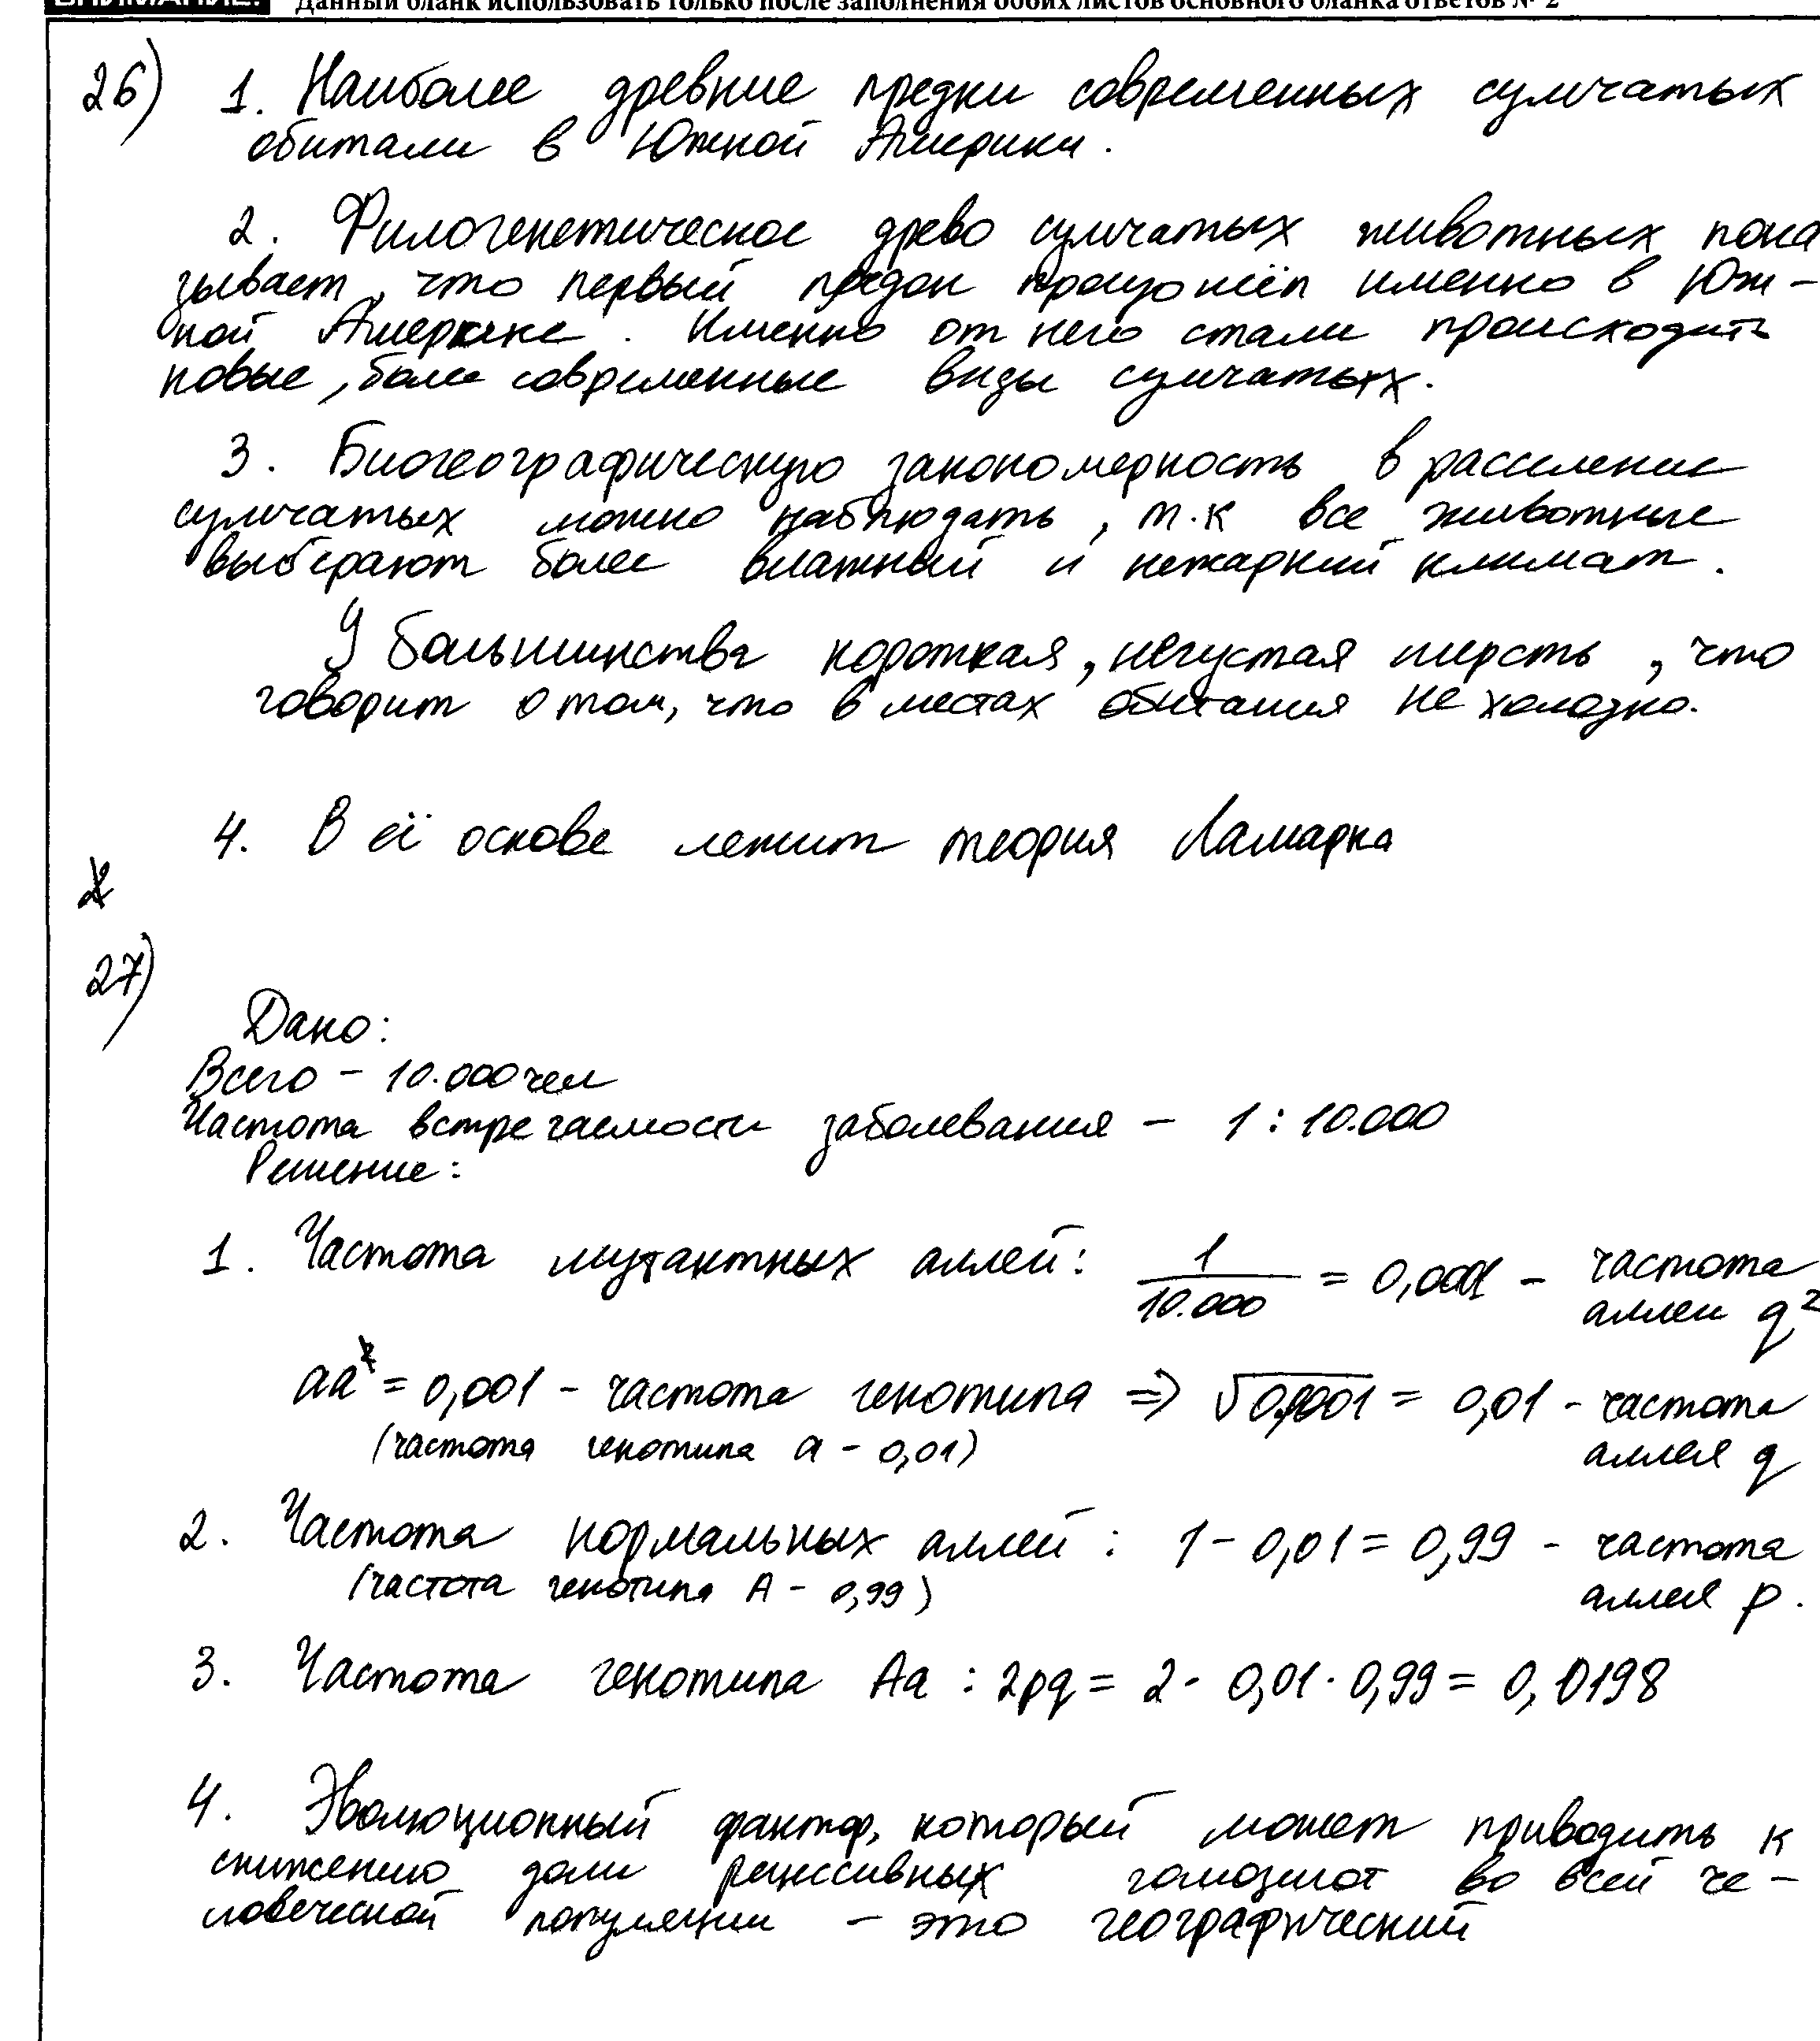 ВНИМАНИЕ! Данный бланк использовать только после заполнения обоих листов основного бланка ответов № 2
26) 1. Наиболее древние предки современных сумчатых
обитали в Южной Америки.
2. Филогенетическое древо сумчатых животных пока
зывает, что первый предок произошёл именно в Юж-
ной Америке. Именно от него стали происходить
новые, более современные виды сумчатых.
3. Биогеографическую закономерность в расселение
сумчатых можно наблюдать, т.к все животные
выберают более влажный и нежаркий климат.
У большинства короткая, негустая шерсть, что
говорит о том, что в местах обитания не холодно.
4. В её основе лежит теория Ламарка
27)
Дано:
Всего - 10.000 чел
Частота встречаемости заболевания - 1 : 10.000
Решение:
1. Частота мутантных аллей: 1/10.000 = 0,0001 - частота
аллеи q²
aa = 0,001 - частота генотипа => √0,0001 = 0,01 - частота
(частота генотипа a - 0,01) аллея q
2. Частота нормальных аллей : 1 - 0,01 = 0,99 - частота
(частота генотипа A - 0,99) аллея p.
3. Частота генотипа Aa : 2pq = 2 · 0,01 · 0,99 = 0,0198
4. Эволюционный фактор, который может приводить к
снижению доли рецессивных гомозигот во всей че-
ловеческой популяции - это географический